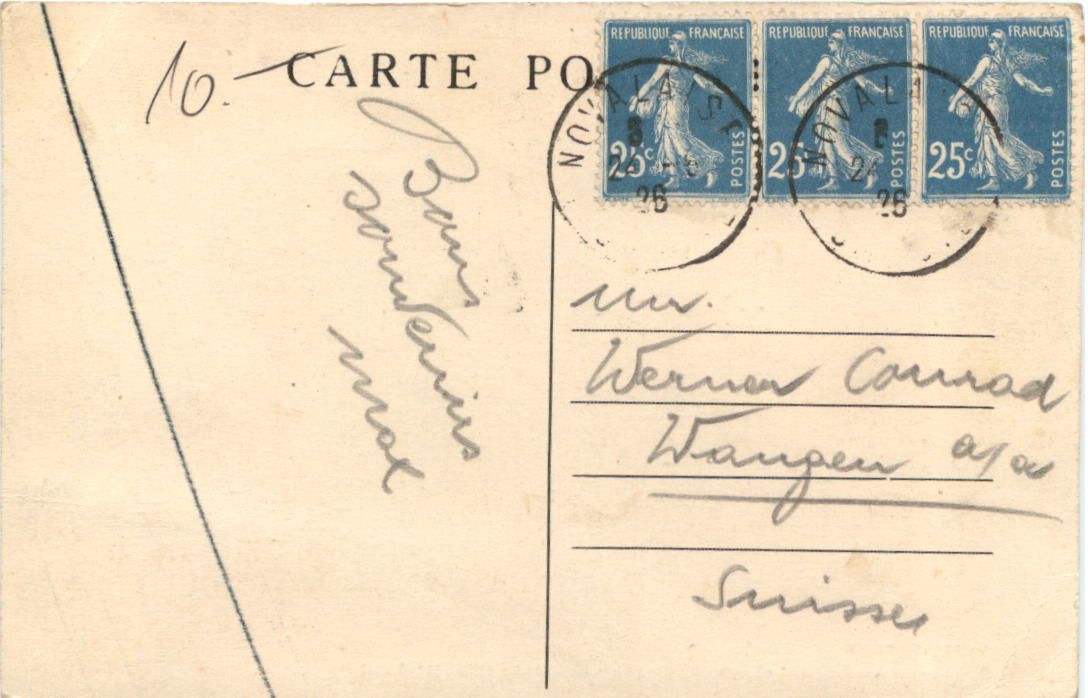 10.-
CARTE PO
RÉPUBLIQUE FRANÇAISE
25c
POSTES
RÉPUBLIQUE FRANÇAISE
25
POSTES
RÉPUBLIQUE FRANÇAISE
25c
POSTES
NOVALAISE
24
26
NOVALA
26
Bons
souvenirs
Max
Mr.
Werner Conrad
Wangen a/a
Suisse